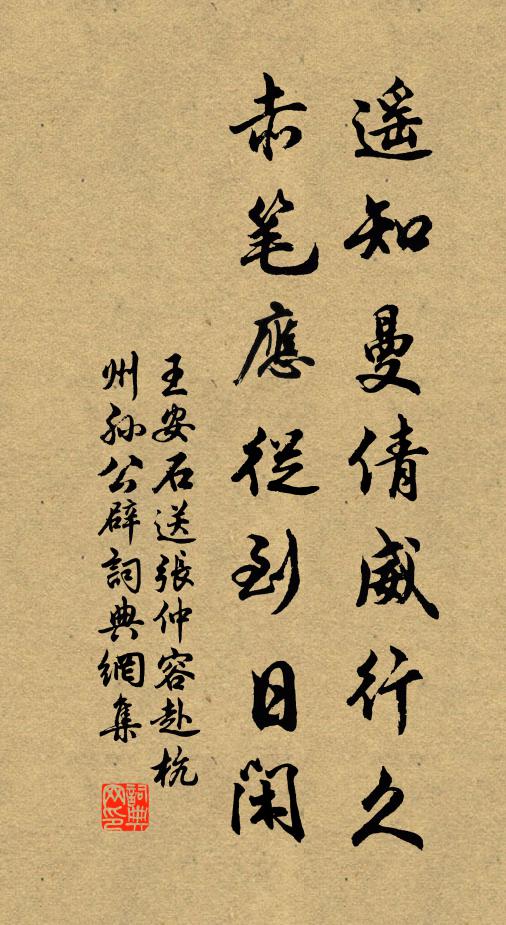 遥知曼倩威行久
赤笔應從到日閑
王安石送張仲容赴杭
州孙公辟詞典網集
詞典
网印